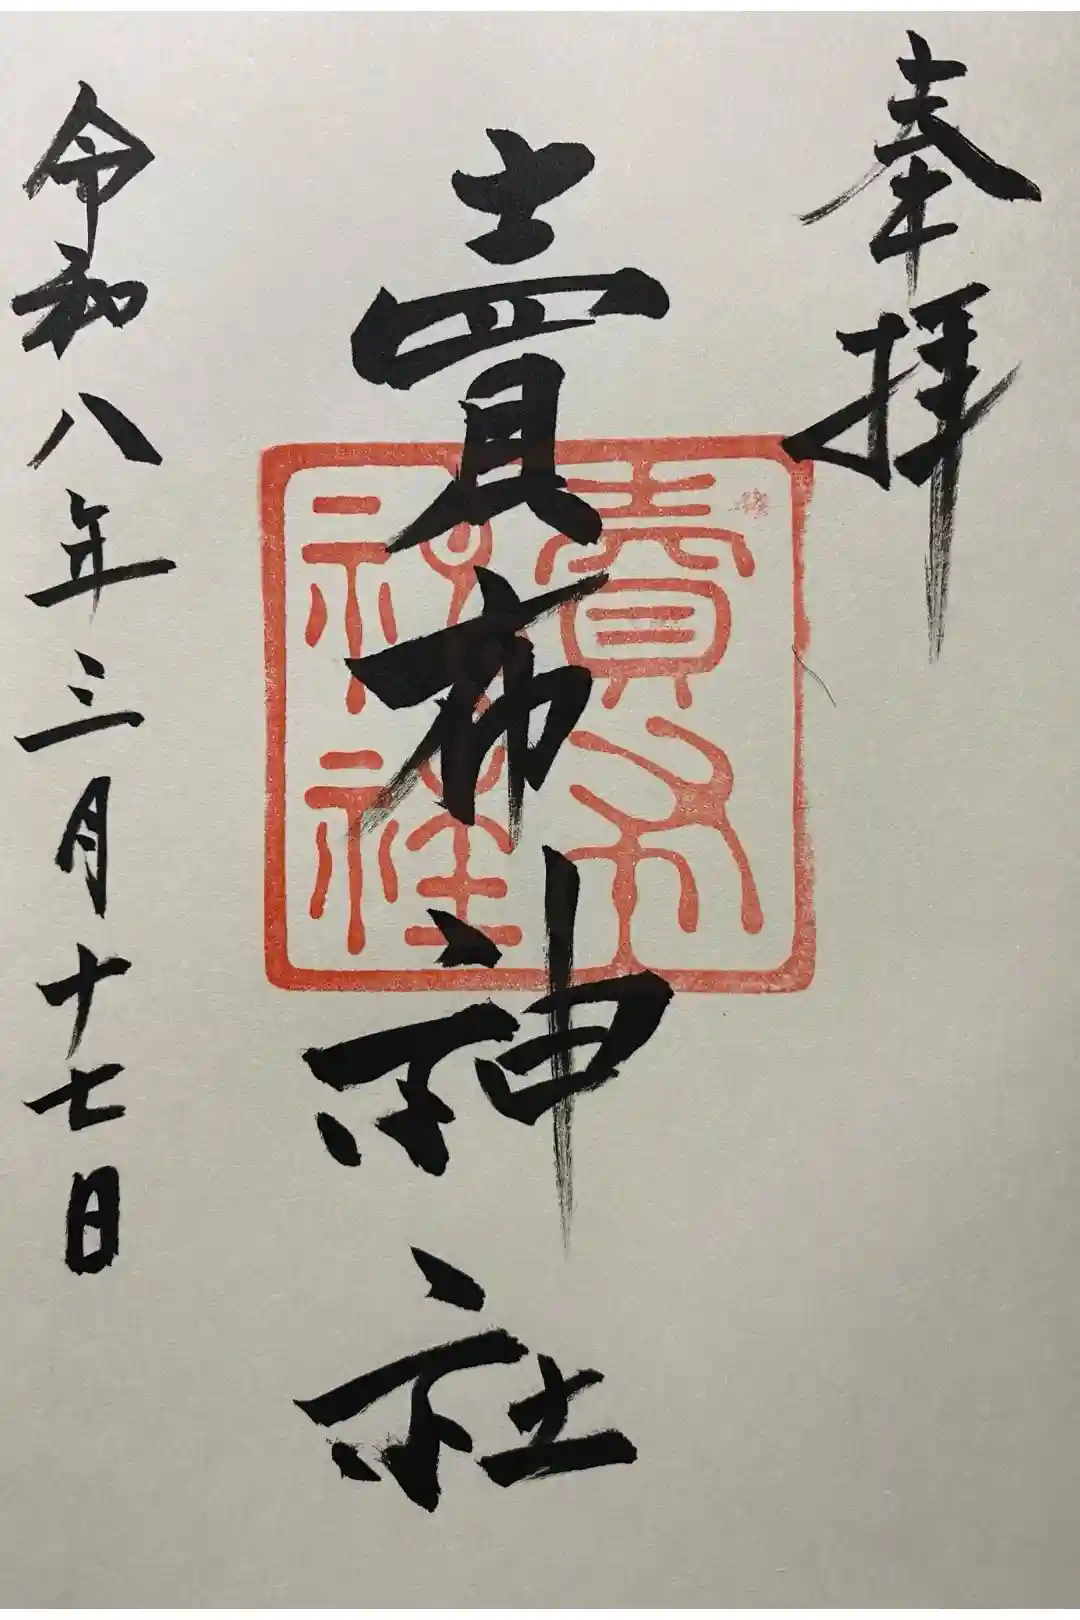 奉拝
賣布神社
賣布
神社
令和八年三月十七日